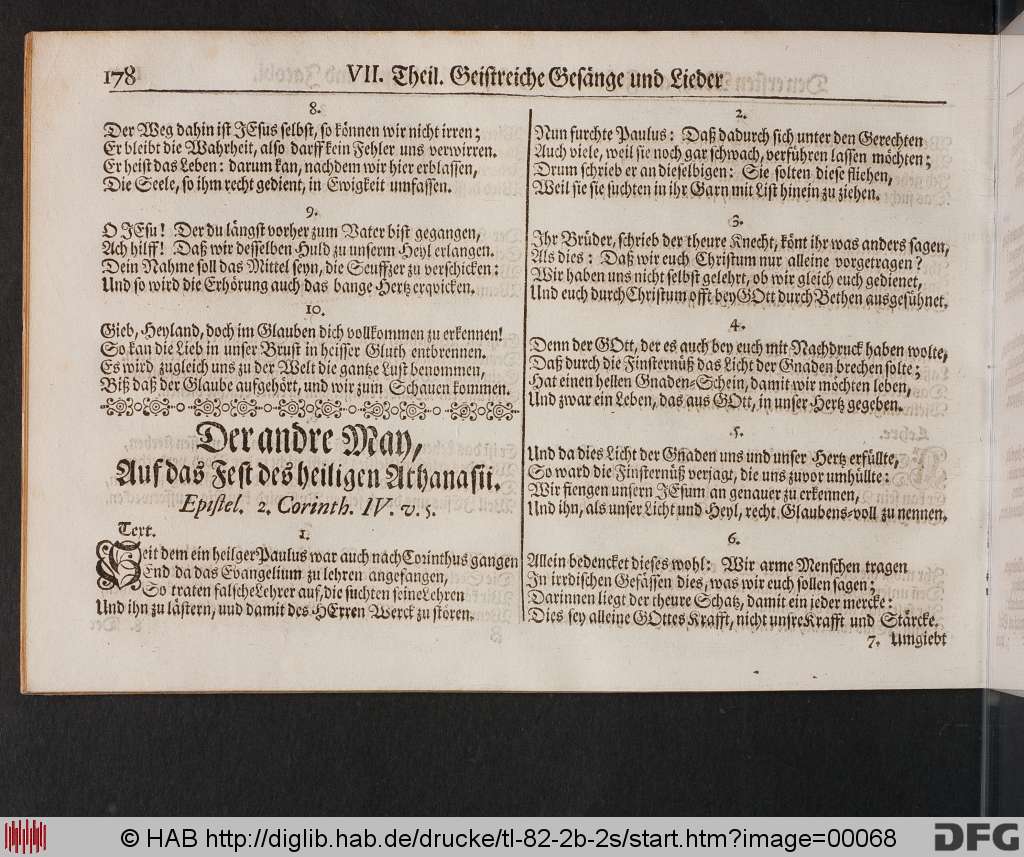 178 VII. Theil. Geistreiche Gesänge und Lieder
8.
Der Weg dahin ist JEsus selbst, so können wir nicht irren;
Er bleibt die Wahrheit, also darff kein Fehler uns verwirren.
Er heist das Leben: darum kan, nachdem wir hier erblassen,
Die Seele, so ihm recht gedient, in Ewigkeit umfassen.
9.
O JEsu! Der du längst vorher zum Vater bist gegangen,
Ach hilff! Daß wir desselben Huld zu unserm Heyl erlangen.
Dein Nahme soll das Mittel seyn, die Seuffzer zu verschicken:
Und so wird die Erhörung auch das bange Hertz erqvicken.
10.
Gieb, Heyland, doch im Glauben dich vollkommen zu erkennen!
So kan die Lieb in unser Brust in heisser Gluth entbrennen.
Es wird zugleich uns zu der Welt die gantze Lust benommen,
Biß daß der Glaube aufgehört, und wir zum Schauen kommen.
Der andre May,
Auf das Fest des heiligen Athanasii.
Epistel. 2. Corinth. IV. v. 5.
Text. 1.
Seit dem ein heilger Paulus war auch nach Corinthus gangen
Und da das Evangelium zu lehren angefangen,
So traten falsche Lehrer auf, die suchten seine Lehren
Und ihn zu lästern, und damit des HErren Werck zu stören.
2.
Nun furchte Paulus: Daß dadurch sich unter den Gerechten
Auch viele, weil sie noch gar schwach, verführen lassen möchten;
Drum schrieb er an dieselbigen: Sie solten diese fliehen,
Weil sie sie suchten in ihr Garn mit List hinein zu ziehen.
3.
Ihr Brüder, schrieb der theure Knecht, könt ihr was anders sagen,
Als dies: Daß wir euch Christum nur alleine vorgetragen?
Wir haben uns nicht selbst gelehrt, ob wir gleich euch gedienet,
Und euch durch Christum offt bey GOtt durch Bethen ausgesühnet.
4.
Denn der GOtt, der es auch bey euch mit Nachdruck haben wolte,
Daß durch die Finsternüß das Licht der Gnaden brechen solte;
Hat einen hellen Gnaden-Schein, damit wir möchten leben,
Und zwar ein Leben, das aus GOtt, in unser Hertz gegeben.
5.
Und da dies Licht der Gnaden uns und unser Hertz erfüllte,
So ward die Finsternüß verjagt, die uns zuvor umhüllte:
Wir fiengen unsern JEsum an genauer zu erkennen,
Und ihn, als unser Licht und Heyl, recht Glaubens-voll zu nennen.
6.
Allein bedencket dieses wohl: Wir arme Menschen tragen
In irrdischen Gefässen dies, was wir euch sollen sagen;
Darinnen liegt der theure Schatz, damit ein jeder mercke:
Dies sey alleine GOttes Krafft, nicht unsre Krafft und Stärcke.
7. Umgiebt
© HAB http://diglib.hab.de/drucke/tl-82-2b-2s/start.htm?image=00068
DFG